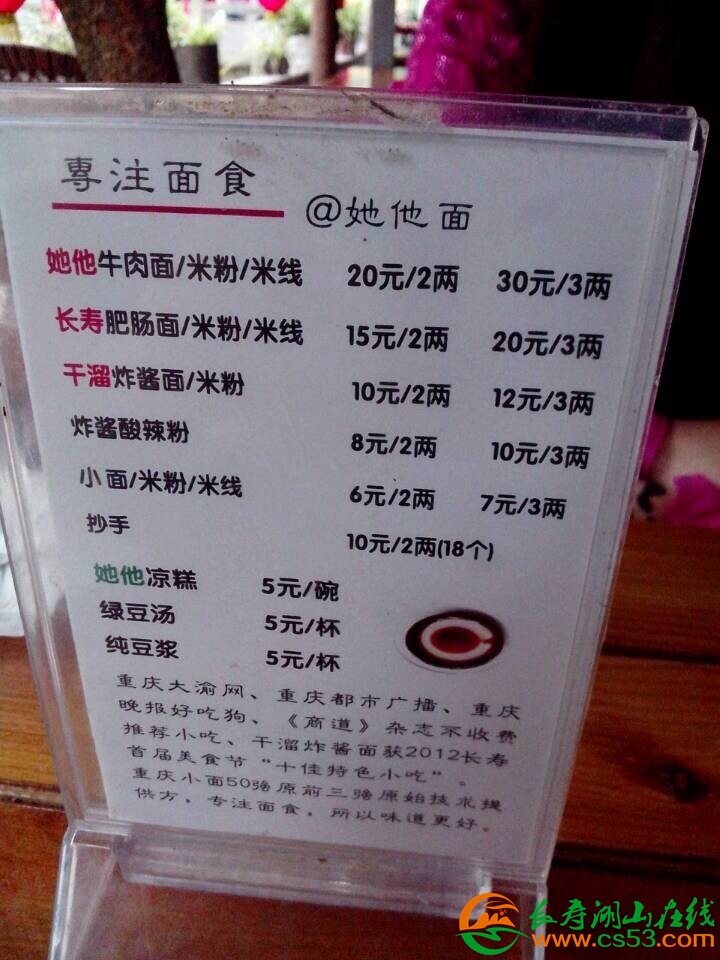 專注面食
@她他面
她他牛肉面/米粉/米线 20元/2两 30元/3两
长寿肥肠面/米粉/米线 15元/2两 20元/3两
干溜炸酱面/米粉 10元/2两 12元/3两
炸酱酸辣粉 8元/2两 10元/3两
小面/米粉/米线 6元/2两 7元/3两
抄手 10元/2两(18个)
她他凉糕 5元/碗
绿豆汤 5元/杯
纯豆浆 5元/杯
重庆大渝网、重庆都市广播、重庆
晚报好吃狗、《商道》杂志不收费
推荐小吃、干溜炸酱面获2012长寿
首届美食节“十佳特色小吃”。
重庆小面50强原前三强原始技术提
供方，专注面食，所以味道更好。
长寿湖山在线
www.cs53.com